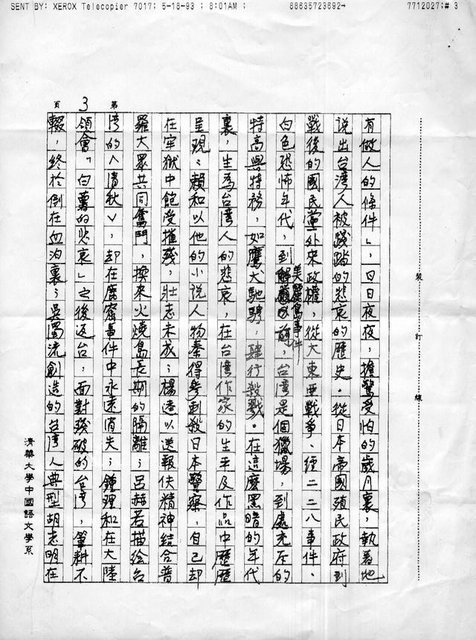 SENT BY: XEROX Telecopier 7017; 5-18-93 ; 8:01AM ; 88635723692→ 7712027;# 3
第 3 頁
裝訂線
有做人的條件」,日日夜夜,擔驚受怕的歲月裏,執着地
說出台灣人被踐踏的悲哀的歷史。從日本帝國殖民政府到
戰後的國民黨外來政權,從大東亞戰爭、經二二八事件、
白色恐怖年代,到美麗島事件,台灣是個獵場,到處充斥的
特高與特務,如鷹犬馳騁,肆行殺戮。在這麼黑暗的年代
裏,生為台灣人的悲哀,在台灣作家的生平及作品中歷歷
呈現:賴和以他的小說人物秦得參刺殺日本警察,自己卻
在牢獄中飽受摧殘,壯志未成;楊逵以送報伕精神結合普
羅大眾共同奮鬥,換來火燒島長期的隔離;呂赫若描繪台
灣的〈清秋〉,卻在鹿窟事件中永遠消失;鍾理和在大陸
領會「白薯的悲哀」之後返台,面對殘破的台灣,筆耕不
輟,終於倒在血泊裏;吳濁流創造的台灣人典型胡志明在
清華大學中國語文學系